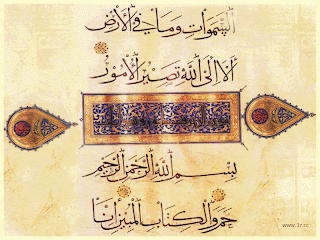 السَّمَوَاتِ وَمَا فِي الْأَرْضِ
أَلَا إِلَى اللَّهِ تَصِيرُ الْأُمُورُ
بِسْمِ اللَّهِ الرَّحْمَنِ الرَّحِيمِ
حَم وَالْكِتَابِ الْمُبِينِ إِنَّا